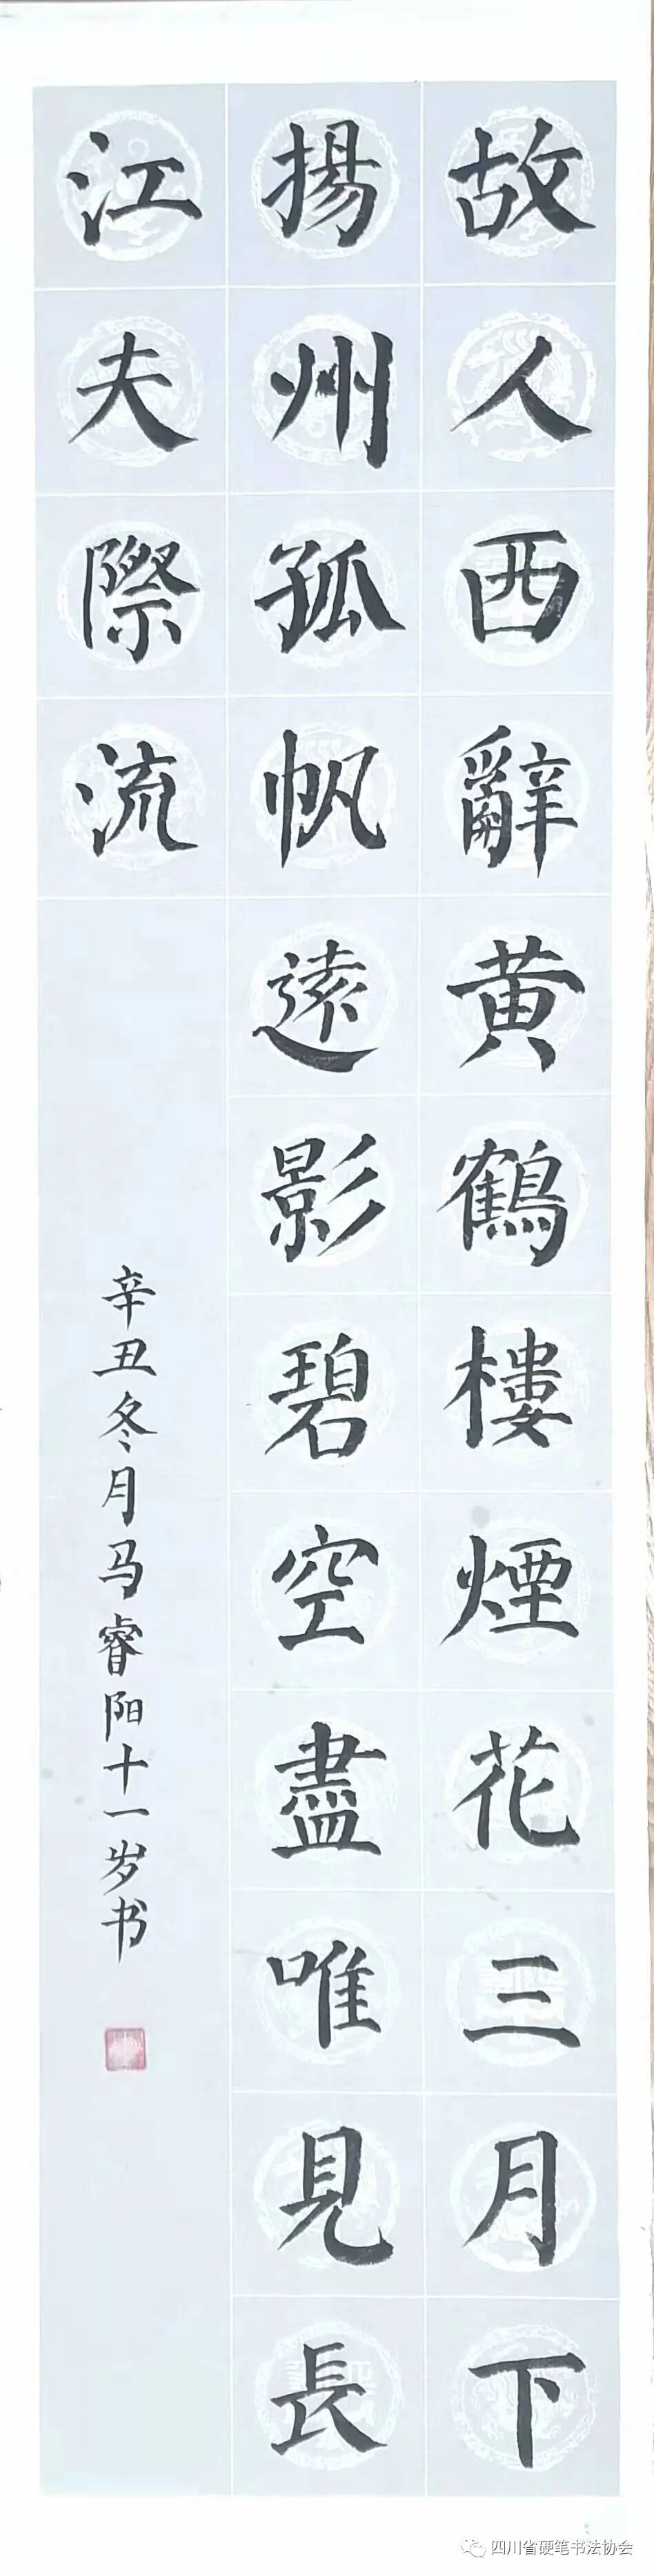 故人西辭黃鶴樓煙花三月下
揚州孤帆遠影碧空盡唯見長
江夫際流
辛丑冬月马睿阳十一岁书
四川省硬笔书法协会